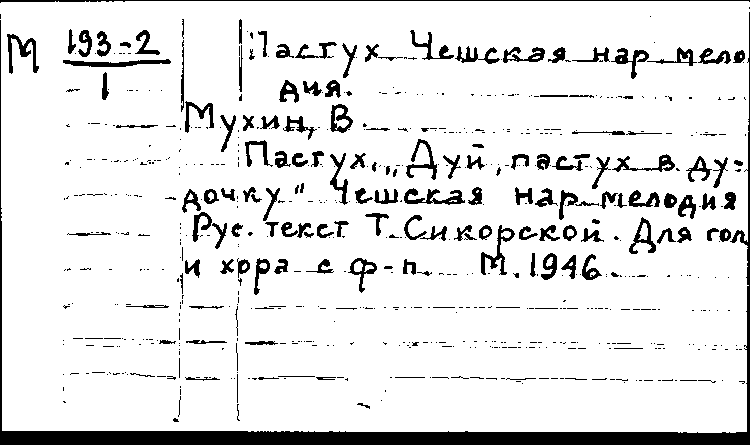 М 193-2 Пастух Чешская нар. мело
1 дия.
Мухин, В.
Пастух. „Дуй, пастух в ду-
дочку" Чешская нар. мелодия
Рус. текст Т. Сикорской. Для гол
и хора с ф-п. М. 1946.